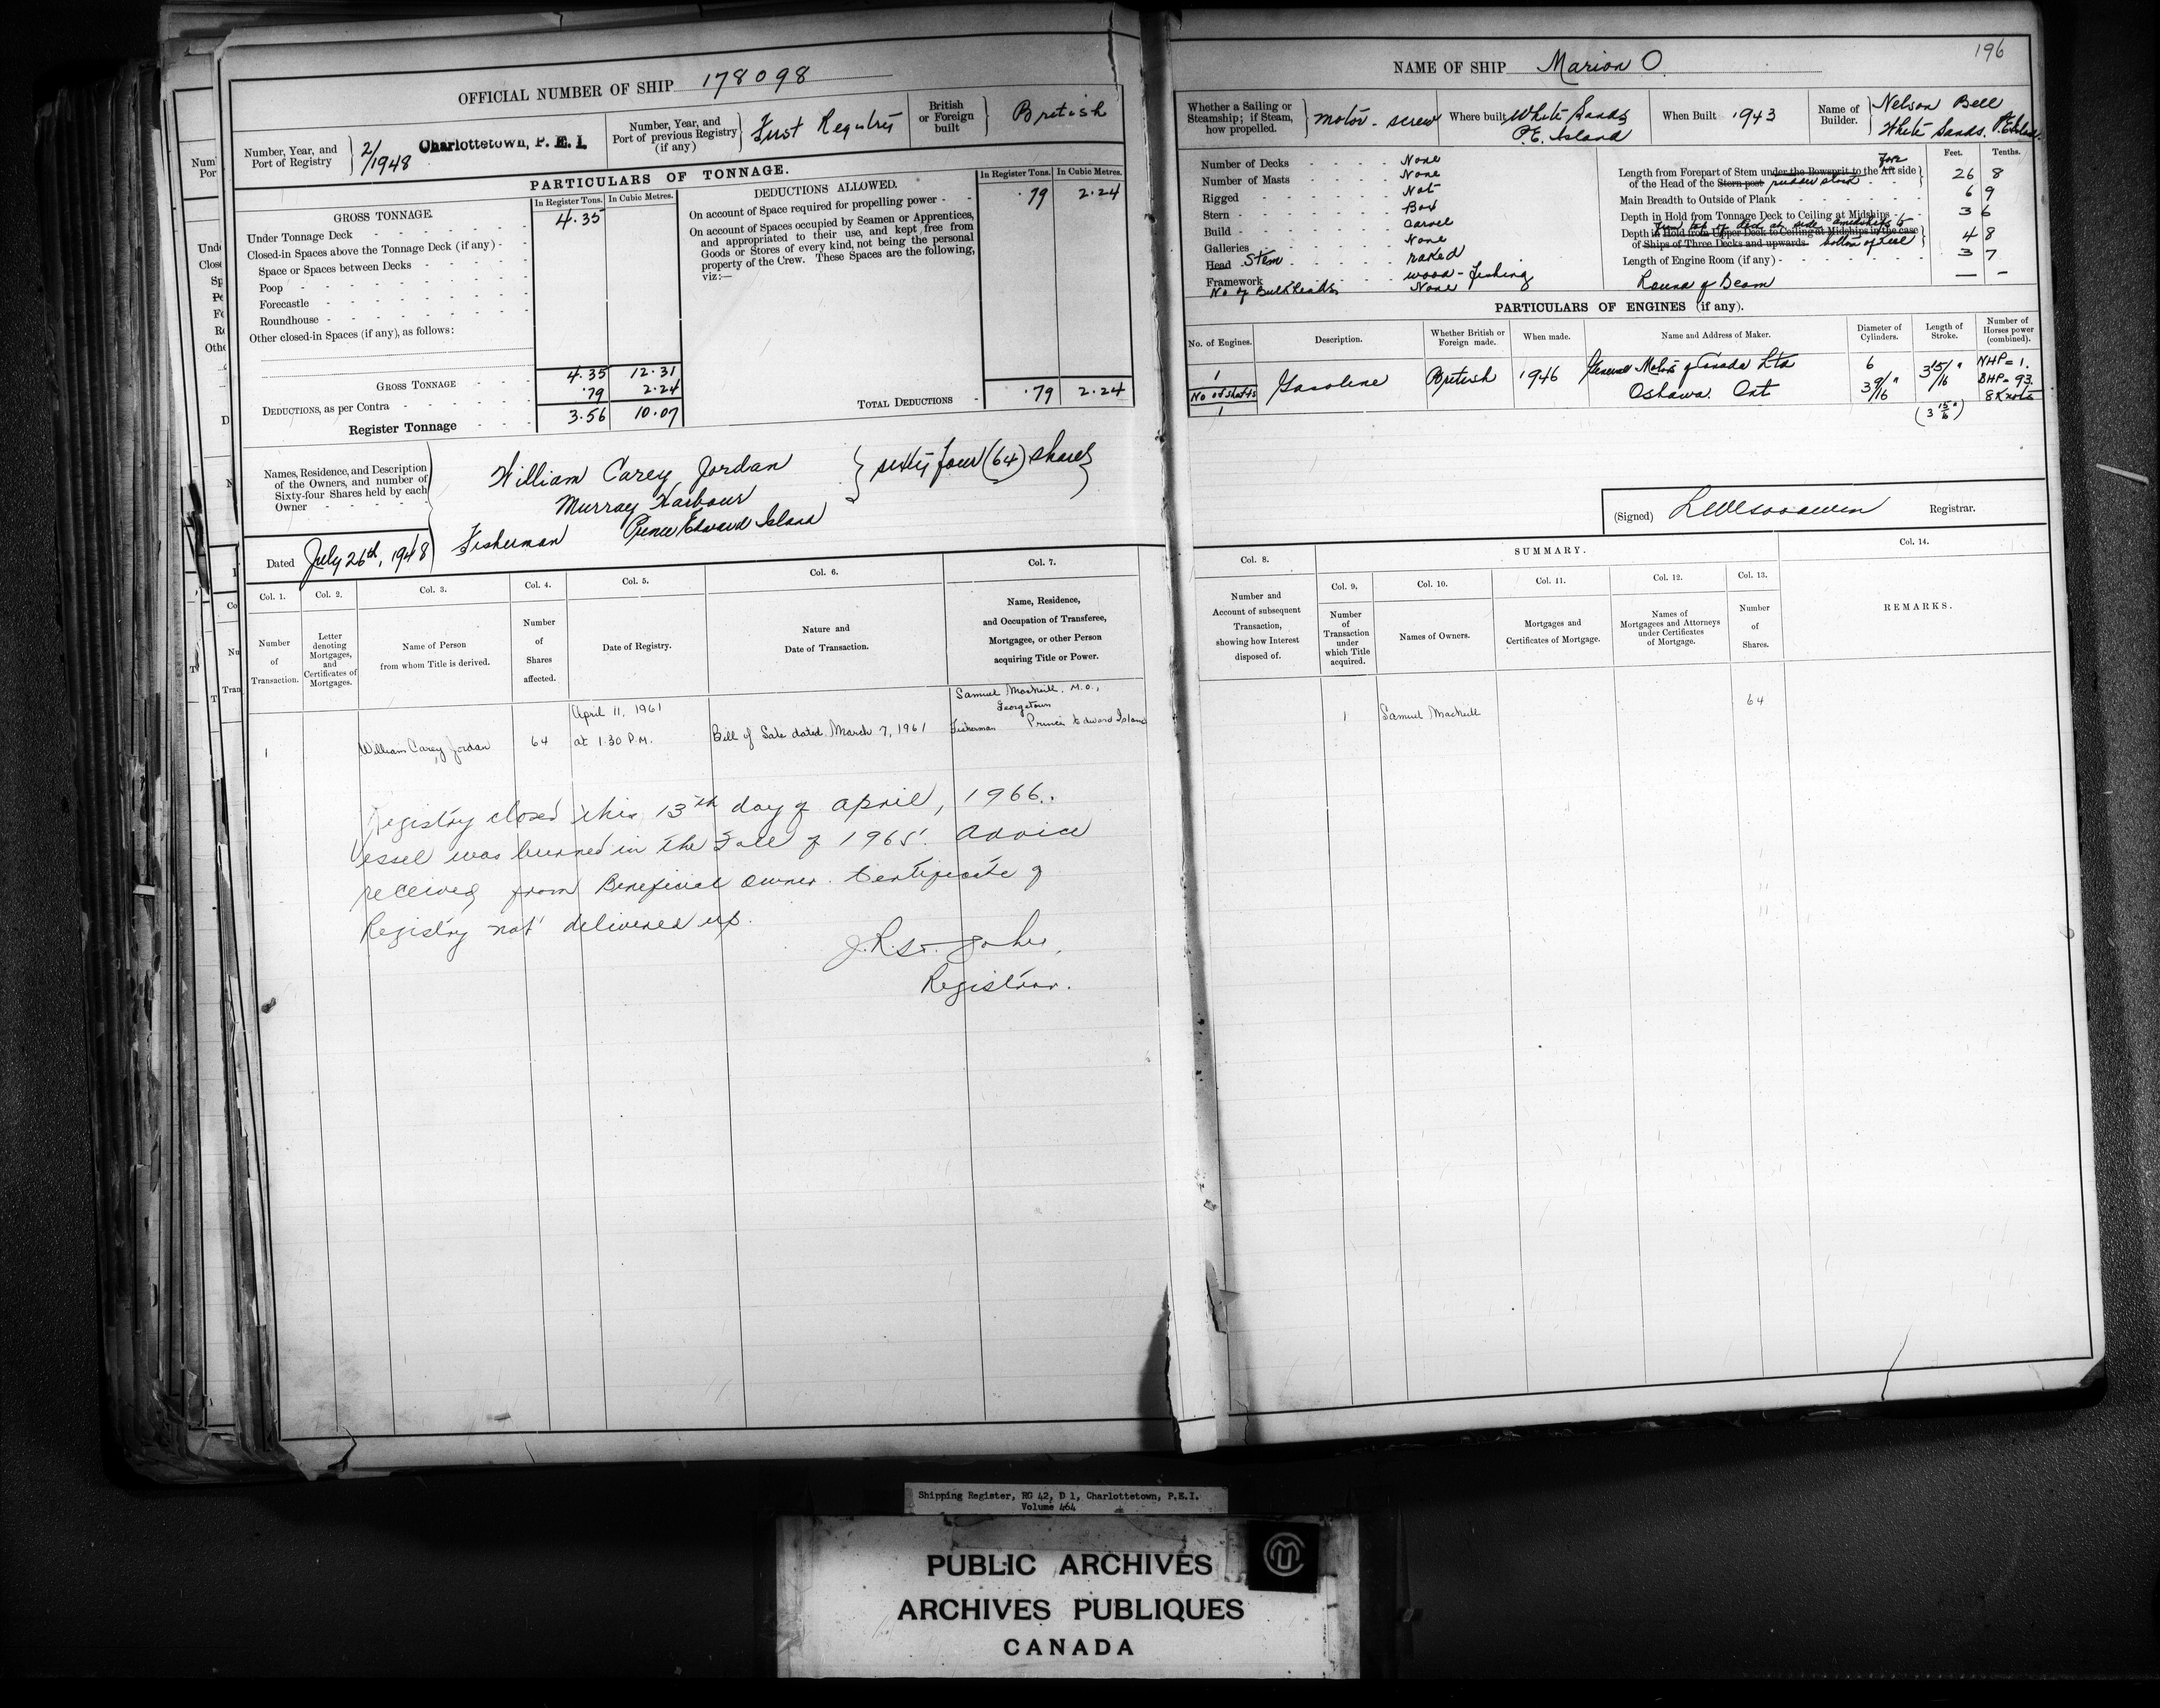 OFFICIAL NUMBER OF SHIP 178098
Number, Year, and
Port of Registry
2/1948
Charlottetown, P. E. I.
Number, Year, and
Port of previous Registry
(if any)
First Registry
British
or Foreign
built
British
PARTICULARS OF TONNAGE.
GROSS TONNAGE.
In Register Tons.
In Cubic Metres.
Under Tonnage Deck 4.35
Closed-in Spaces above the Tonnage Deck (if any)
Space or Spaces between Decks
Poop
Forecastle
Roundhouse
Other closed-in Spaces (if any), as follows:
GROSS TONNAGE 4.35 12.31
DEDUCTIONS, as per Contra .79 2.24
Register Tonnage 3.56 10.07
DEDUCTIONS ALLOWED.
In Register Tons.
In Cubic Metres.
On account of Space required for propelling power .79 2.24
On account of Spaces occupied by Seamen or Apprentices,
and appropriated to their use, and kept free from
Goods or Stores of every kind, not being the personal
property of the Crew. These Spaces are the following,
viz:—
TOTAL DEDUCTIONS .79 2.24
Names, Residence, and Description
of the Owners, and number of
Sixty-four Shares held by each
Owner
William Carey Jordan
Murray Harbour
Prince Edward Island
Fisherman
sixty four (64) shares
Dated July 26th, 1948
Col. 1.
Number
of
Transaction.
Col. 2.
Letter
denoting
Mortgages,
and
Certificates of
Mortgages.
Col. 3.
Name of Person
from whom Title is derived.
Col. 4.
Number
of
Shares
affected.
Col. 5.
Date of Registry.
Col. 6.
Nature and
Date of Transaction.
Col. 7.
Name, Residence,
and Occupation of Transferee,
Mortgagee, or other Person
acquiring Title or Power.
1
William Carey Jordan
64
April 11, 1961
at 1.30 P.M.
Bill of Sale dated March 7, 1961
Samuel MacNeill, M.O.,
Georgetown
Prince Edward Island
Fisherman
Registry closed this 13th day of April, 1966.
Vessel was burned in the Fall of 1965. Advice
received from Beneficial Owner. Certificate of
Registry not delivered up.
J.R. St. John,
Registrar.
196
NAME OF SHIP Marion O.
Whether a Sailing or
Steamship; if Steam,
how propelled.
Motor - screw
Where built
White Sands
P.E. Island
When Built 1943
Name of
Builder.
Nelson Bell
White Sands, P.E. Island.
Number of Decks None
Number of Masts None
Rigged Not
Stern Box
Build Carvel
Galleries None
Head Stem raked
Framework wood - fishing
No of Bulkheads None
Feet. Tenths.
Length from Forepart of Stem under the Bowsprit to the Aft side Fore
of the Head of the Stern post rudder stock 26 8
Main Breadth to Outside of Plank 6 9
Depth in Hold from Tonnage Deck to Ceiling at Midships 3 6
from top of deck at side amidships to
Depth in Hold from Upper Deck to Ceiling at Midships in the case
of Ships of Three Decks and upwards bottom of keel 4 8
Length of Engine Room (if any) 3 7
Round of Beam — —
PARTICULARS OF ENGINES (if any).
No. of Engines.
Description.
Whether British or
Foreign made.
When made.
Name and Address of Maker.
Diameter of
Cylinders.
Length of
Stroke.
Number of
Horses power
(combined).
1
No of shafts
1
Gasoline
British
1946
General Motors of Canada Ltd
Oshawa. Ont
6
3 9/16"
3 15/16"
(3 15/16")
NHP = 1.
BHP = 93.
8 Knots
(Signed)
Registrar.
Col. 8.
Number and
Account of subsequent
Transaction,
showing how Interest
disposed of.
SUMMARY.
Col. 9.
Number
of
Transaction
under
which Title
acquired.
Col. 10.
Names of Owners.
Col. 11.
Mortgages and
Certificates of Mortgage.
Col. 12.
Names of
Mortgagees and Attorneys
under Certificates
of Mortgage.
Col. 13.
Number
of
Shares.
Col. 14.
REMARKS.
1
Samuel MacNeill
64
Shipping Register, RG 42, D 1, Charlottetown, P.E.I.
Volume 464
PUBLIC ARCHIVES
ARCHIVES PUBLIQUES
CANADA